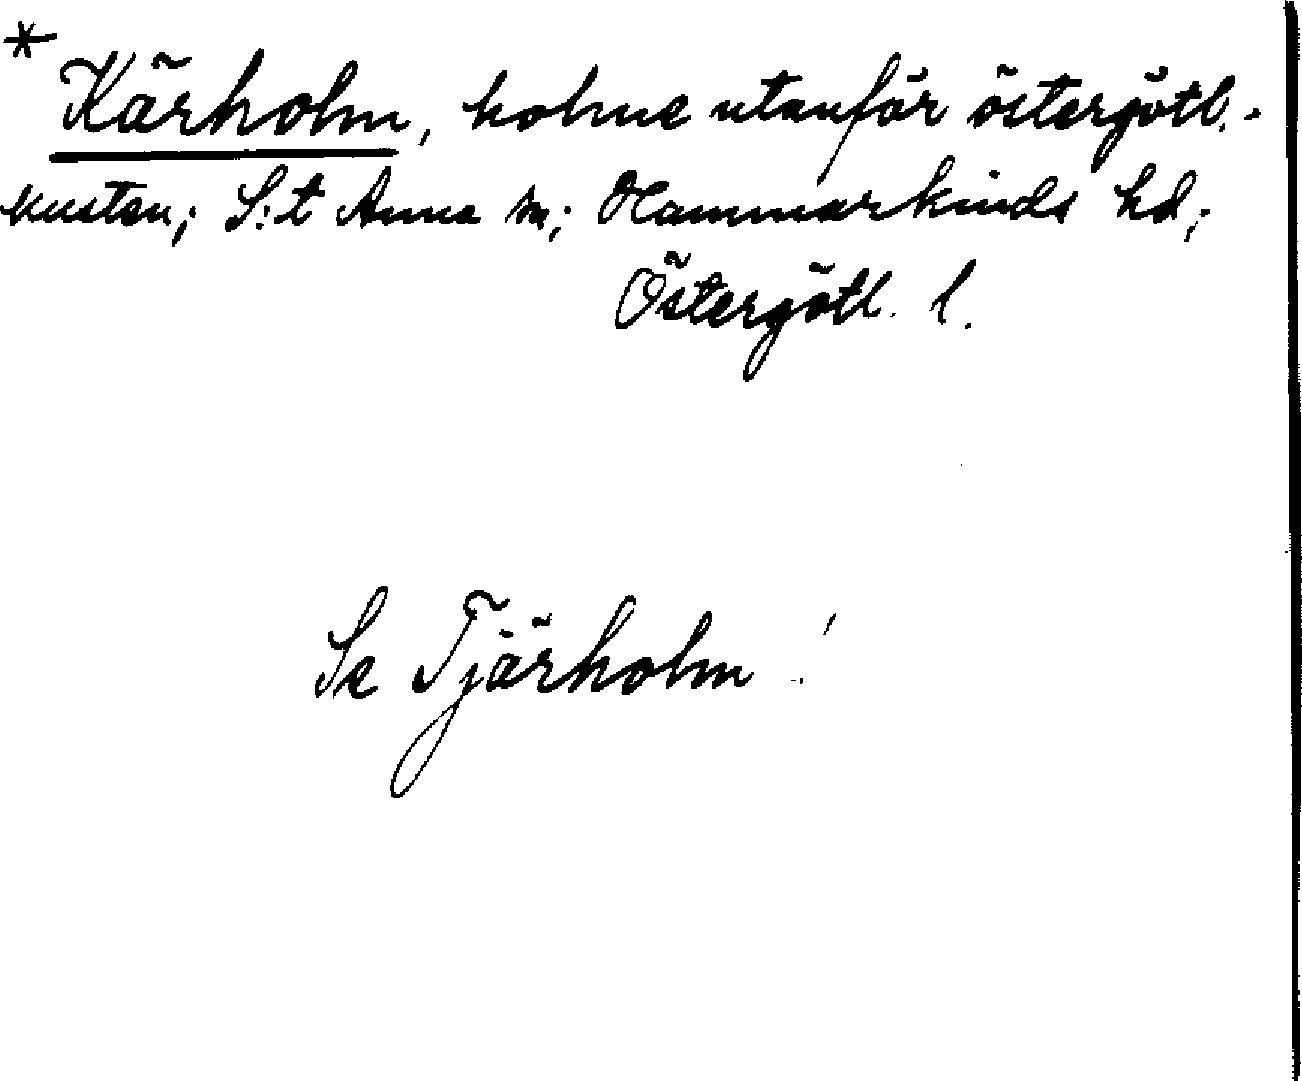 * Kärholm, holme utanför östergötl.-
kusten; S:t Anna sn; Hammarkinds hd;
Östergötl. l.
Se Tjärholm !